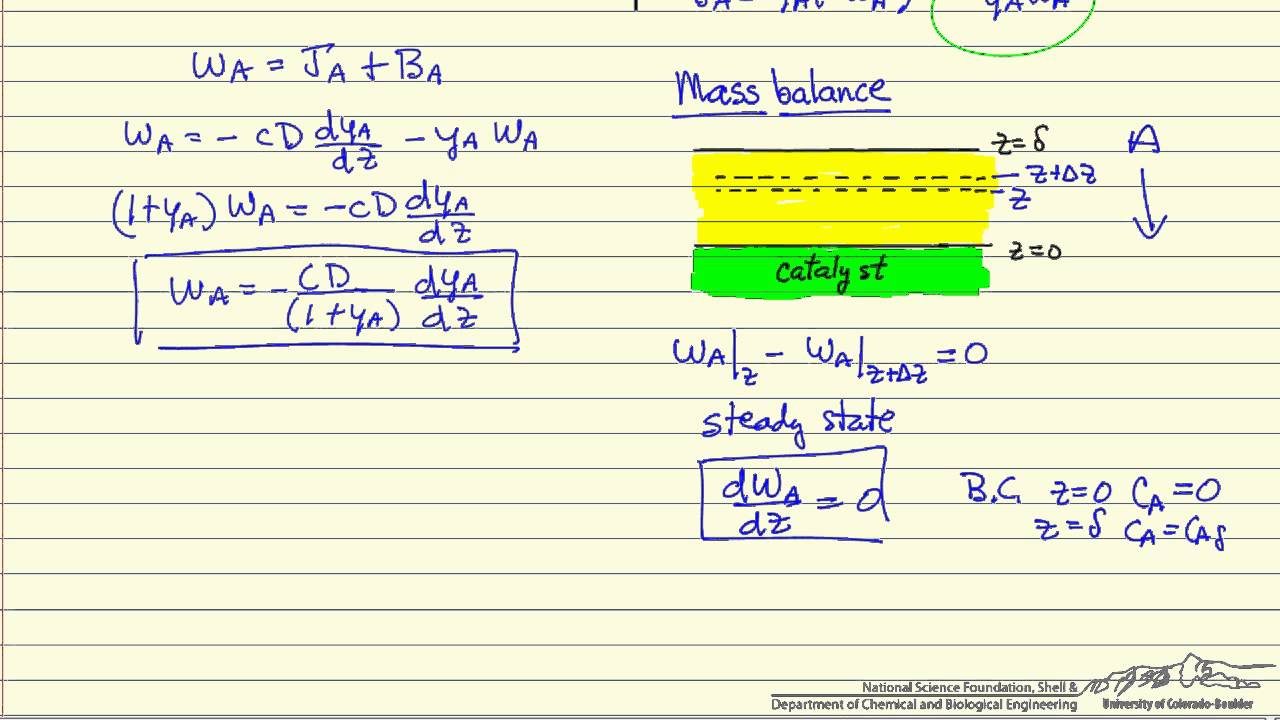 W_A = J_A + B_A
W_A = - cD dy_A/dz - y_A W_A
(1+y_A) W_A = -cD dy_A/dz
W_A = - CD/(1+y_A) dy_A/dz
y_A W_A
Mass balance
z=δ
z+Δz
z
z=0
A
catalyst
W_A|_z - W_A|_z+Δz = 0
steady state
dW_A/dz = 0
B.C. z=0 C_A=0
z=δ C_A=C_Aδ
National Science Foundation, Shell &
Department of Chemical and Biological Engineering
University of Colorado-Boulder